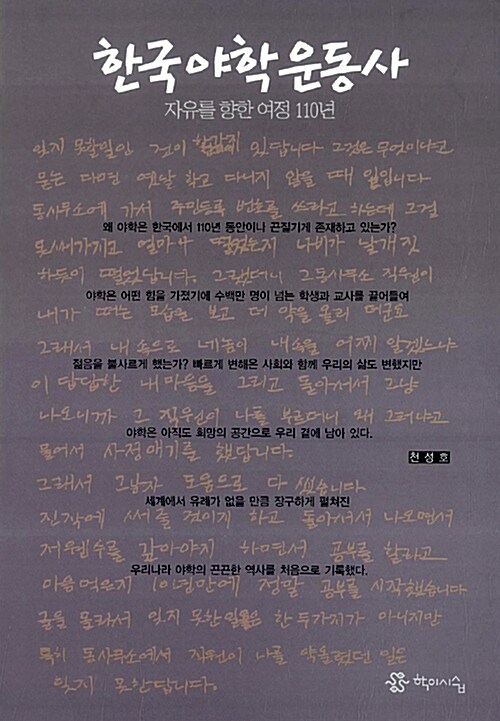 한국야학운동사
자유를 향한 여정 110년
잊지 못할일인 것이 한가지 있답니다 그것은 무엇이냐면
묻는 다면 옛날 학교 다니지 않을 때 일입니다
동사무소에 가서 주민등록 번호를 쓰라고 하는데 그걸
왜 야학은 한국에서 110년 동안이나 끈질기게 존재하고 있는가?
못써가지고 얼마나 떨었는지 나비가 날개짓
하듯이 떨었답니다. 그랬더니 그동사무소 직원이
야학은 어떤 힘을 가졌기에 수백만 명이 넘는 학생과 교사를 끌어들여
내가 떠는 모습을 보고 더 약을 올리 더군요
그래서 내 손으로 네놈이 내속을 어찌 알겠느냐
젊음을 불사르게 했는가? 빠르게 변해온 사회와 함께 우리의 삶도 변했지만
이 답답한 내 마음을 그리고 돌아서서 그냥
나오니까 그 직원이 나를 부르더니 왜 그러냐고
야학은 아직도 희망의 공간으로 우리 곁에 남아 있다.
물어서 사정얘기를 했답니다.
천성호
그래서 그남자 도움으로 다 썼습니다
세계에서 유례가 없을 만큼 장구하게 펼쳐진
진작에 써줄 것이지 하고 돌아서서 나오면서
저웬수를 갚아야지 하면서 공부를 할라고
우리나라 야학의 끈끈한 역사를 처음으로 기록했다.
마음먹은지 10년만에 정말 공부를 시작했습니다
글을 몰라서 잊지 못한 일들은 한 두가지가 아니지만
특히 동사무소에서 직원이 나를 약올렸던 일은
잊지 못한답니다.
학이시습